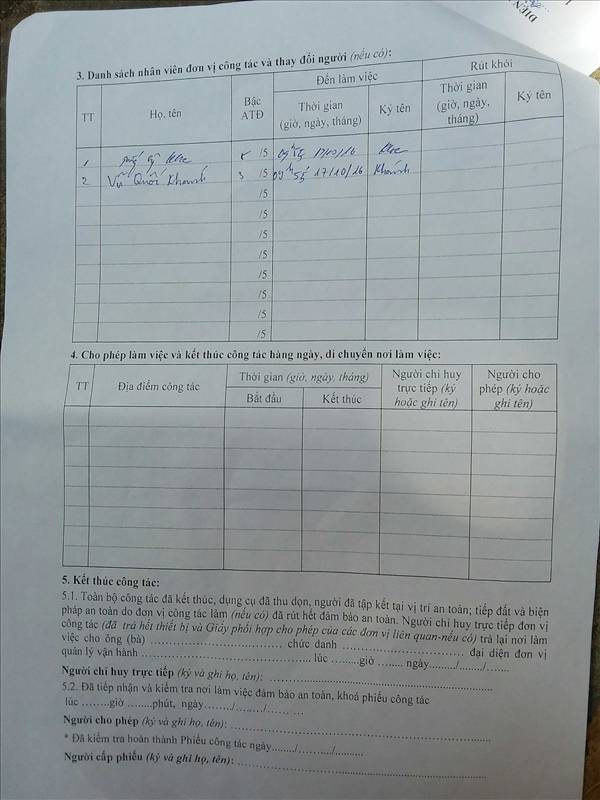 3. Danh sách nhân viên đơn vị công tác và thay đổi người (nếu có):
TT
Họ, tên
Bậc ATĐ
Đến làm việc
Rút khỏi
Thời gian (giờ, ngày, tháng)
Ký tên
Thời gian (giờ, ngày, tháng)
Ký tên
1 /5 17/10/16
2 Vũ Quốc Khanh 3 /5 17/10/16 Khanh
/5
/5
/5
/5
/5
/5
/5
/5
4. Cho phép làm việc và kết thúc công tác hàng ngày, di chuyển nơi làm việc:
TT
Địa điểm công tác
Thời gian (giờ, ngày, tháng)
Bắt đầu
Kết thúc
Người chỉ huy trực tiếp (ký hoặc ghi tên)
Người cho phép (ký hoặc ghi tên)
5. Kết thúc công tác:
5.1. Toàn bộ công tác đã kết thúc, dụng cụ đã thu dọn, người đã tập kết tại vị trí an toàn; tiếp đất và biện
pháp an toàn do đơn vị công tác làm (nếu có) đã rút hết đảm bảo an toàn. Người chỉ huy trực tiếp đơn vị
công tác (đã trả hết thiết bị và Giấy phối hợp cho phép của các đơn vị liên quan-nếu có) trả lại nơi làm
việc cho ông (bà) ........................ chức danh ........................ đại diện đơn vị
quản lý vận hành ........................ lúc ........giờ ........ ngày......../......../........
Người chỉ huy trực tiếp (ký và ghi họ, tên): ........................
5.2. Đã tiếp nhận và kiểm tra nơi làm việc đảm bảo an toàn, khoá phiếu công tác
lúc ........giờ ........phút, ngày......../......../........
Người cho phép (ký và ghi họ, tên): ........................
* Đã kiểm tra hoàn thành Phiếu công tác ngày......../......../........
Người cấp phiếu (ký và ghi họ, tên): ........................